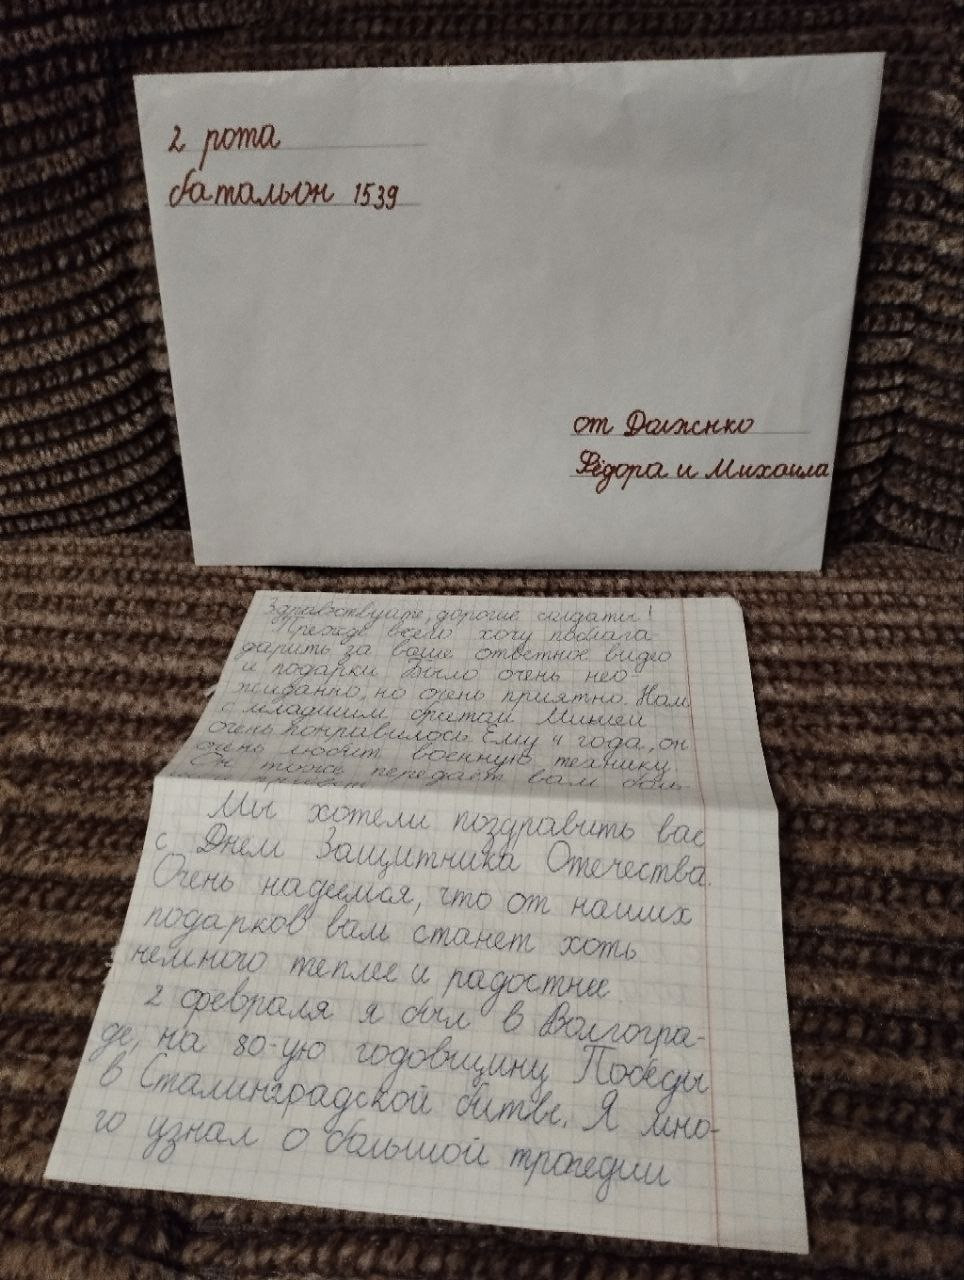 2 рота
батальон 1539
от Должнко
Фёдора и Михаила
Здравствуйте, дорогие солдаты!
Прежде всего хочу поблага-
дарить за ваше ответное видео
и подарки. Было очень нео-
жиданно, но очень приятно. Нам
с младшим братом Мишей
очень понравилось. Ему 4 года, он
очень любит военную технику.
Он тоже передаёт вам боль-
привет
Мы хотели поздравить вас
с Днем Защитника Отечества.
Очень надеимся, что от наших
подарков вам станет хоть
немного теплее и радостнее.
2 февраля я был в Волгогра-
де, на 80-ую годовщину Победы
в Сталинградской битве. Я мно-
го узнал о большой трагедии